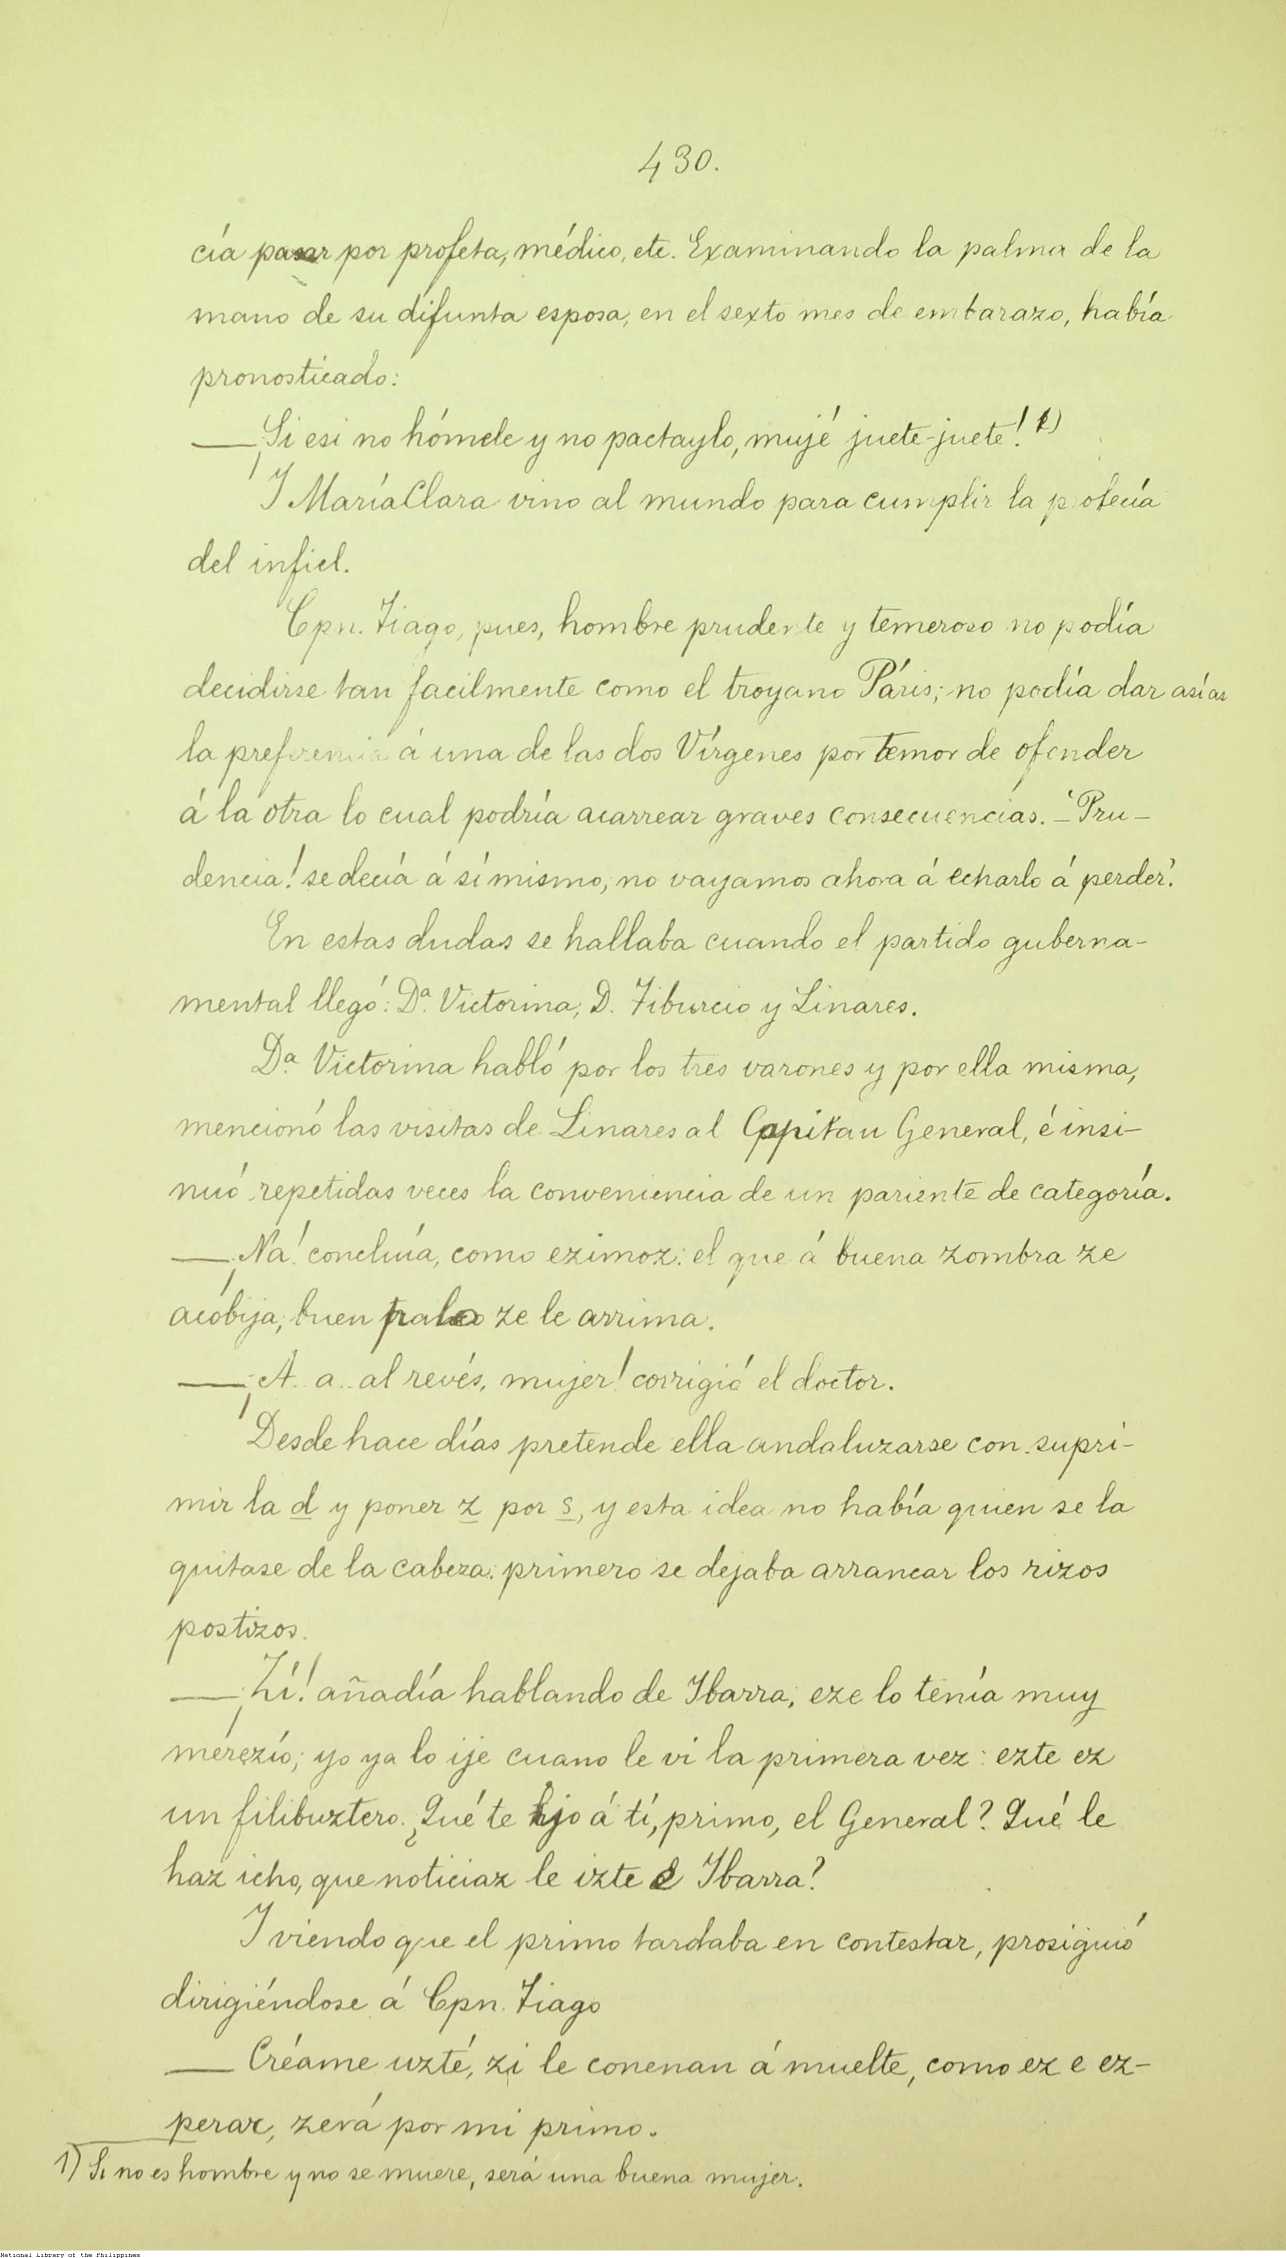 430.
cía pasar por profeta, médico, etc. Examinando la palma de la
mano de su difunta esposa, en el sexto mes de embarazo, había
pronosticado:
—¡Si esi no hómele y no pactaylo, mujé juete-juete! 1)
Y María Clara vino al mundo para cumplir la profecía
del infiel.
Cpn. Tiago, pues, hombre prudente y temeroso no podía
decidirse tan facilmente como el troyano Páris; no podía dar así as
la preferencia á una de las dos Vírgenes por temor de ofender
á la otra lo cual podría acarrear graves consecuencias. – "Pru-
dencia! se decía á sí mismo, no vayamos ahora á echarlo á perder".
En estas dudas se hallaba cuando el partido guberna-
mental llegó: Dª. Victorina, D. Tiburcio y Linares.
Dª. Victorina habló por los tres varones y por ella misma,
mencionó las visitas de Linares al Capitan General, é insi-
nuó repetidas veces la conveniencia de un pariente de categoría.
—¡Na! concluía, como ezimoz: el que á buena zombra ze
acobija, buen palo ze le arrima.
—¡A.. a.. al revés, mujer! corrigió el doctor.
Desde hace días pretende ella andaluzarse con supri-
mir la d y poner z por s, y esta idea no había quien se la
quitase de la cabeza: primero se dejaba arrancar los rizos
postizos.
—¡Zí! añadía hablando de Ibarra; eze lo tenía muy
merezío; yo ya lo ije cuano le vi la primera vez: ezte ez
un filibuztero. ¿Qué te ijo á tí, primo, el General? Qué le
haz icho, que noticiaz le izte e Ibarra?
Y viendo que el primo tardaba en contestar, prosiguió
dirigiéndose á Cpn. Tiago
— Créame uzté, zi le conenan á muelte, como ez e ez-
perar, zerá por mi primo.
1) Si no es hombre y no se muere, será una buena mujer.
National Library of the Philippines